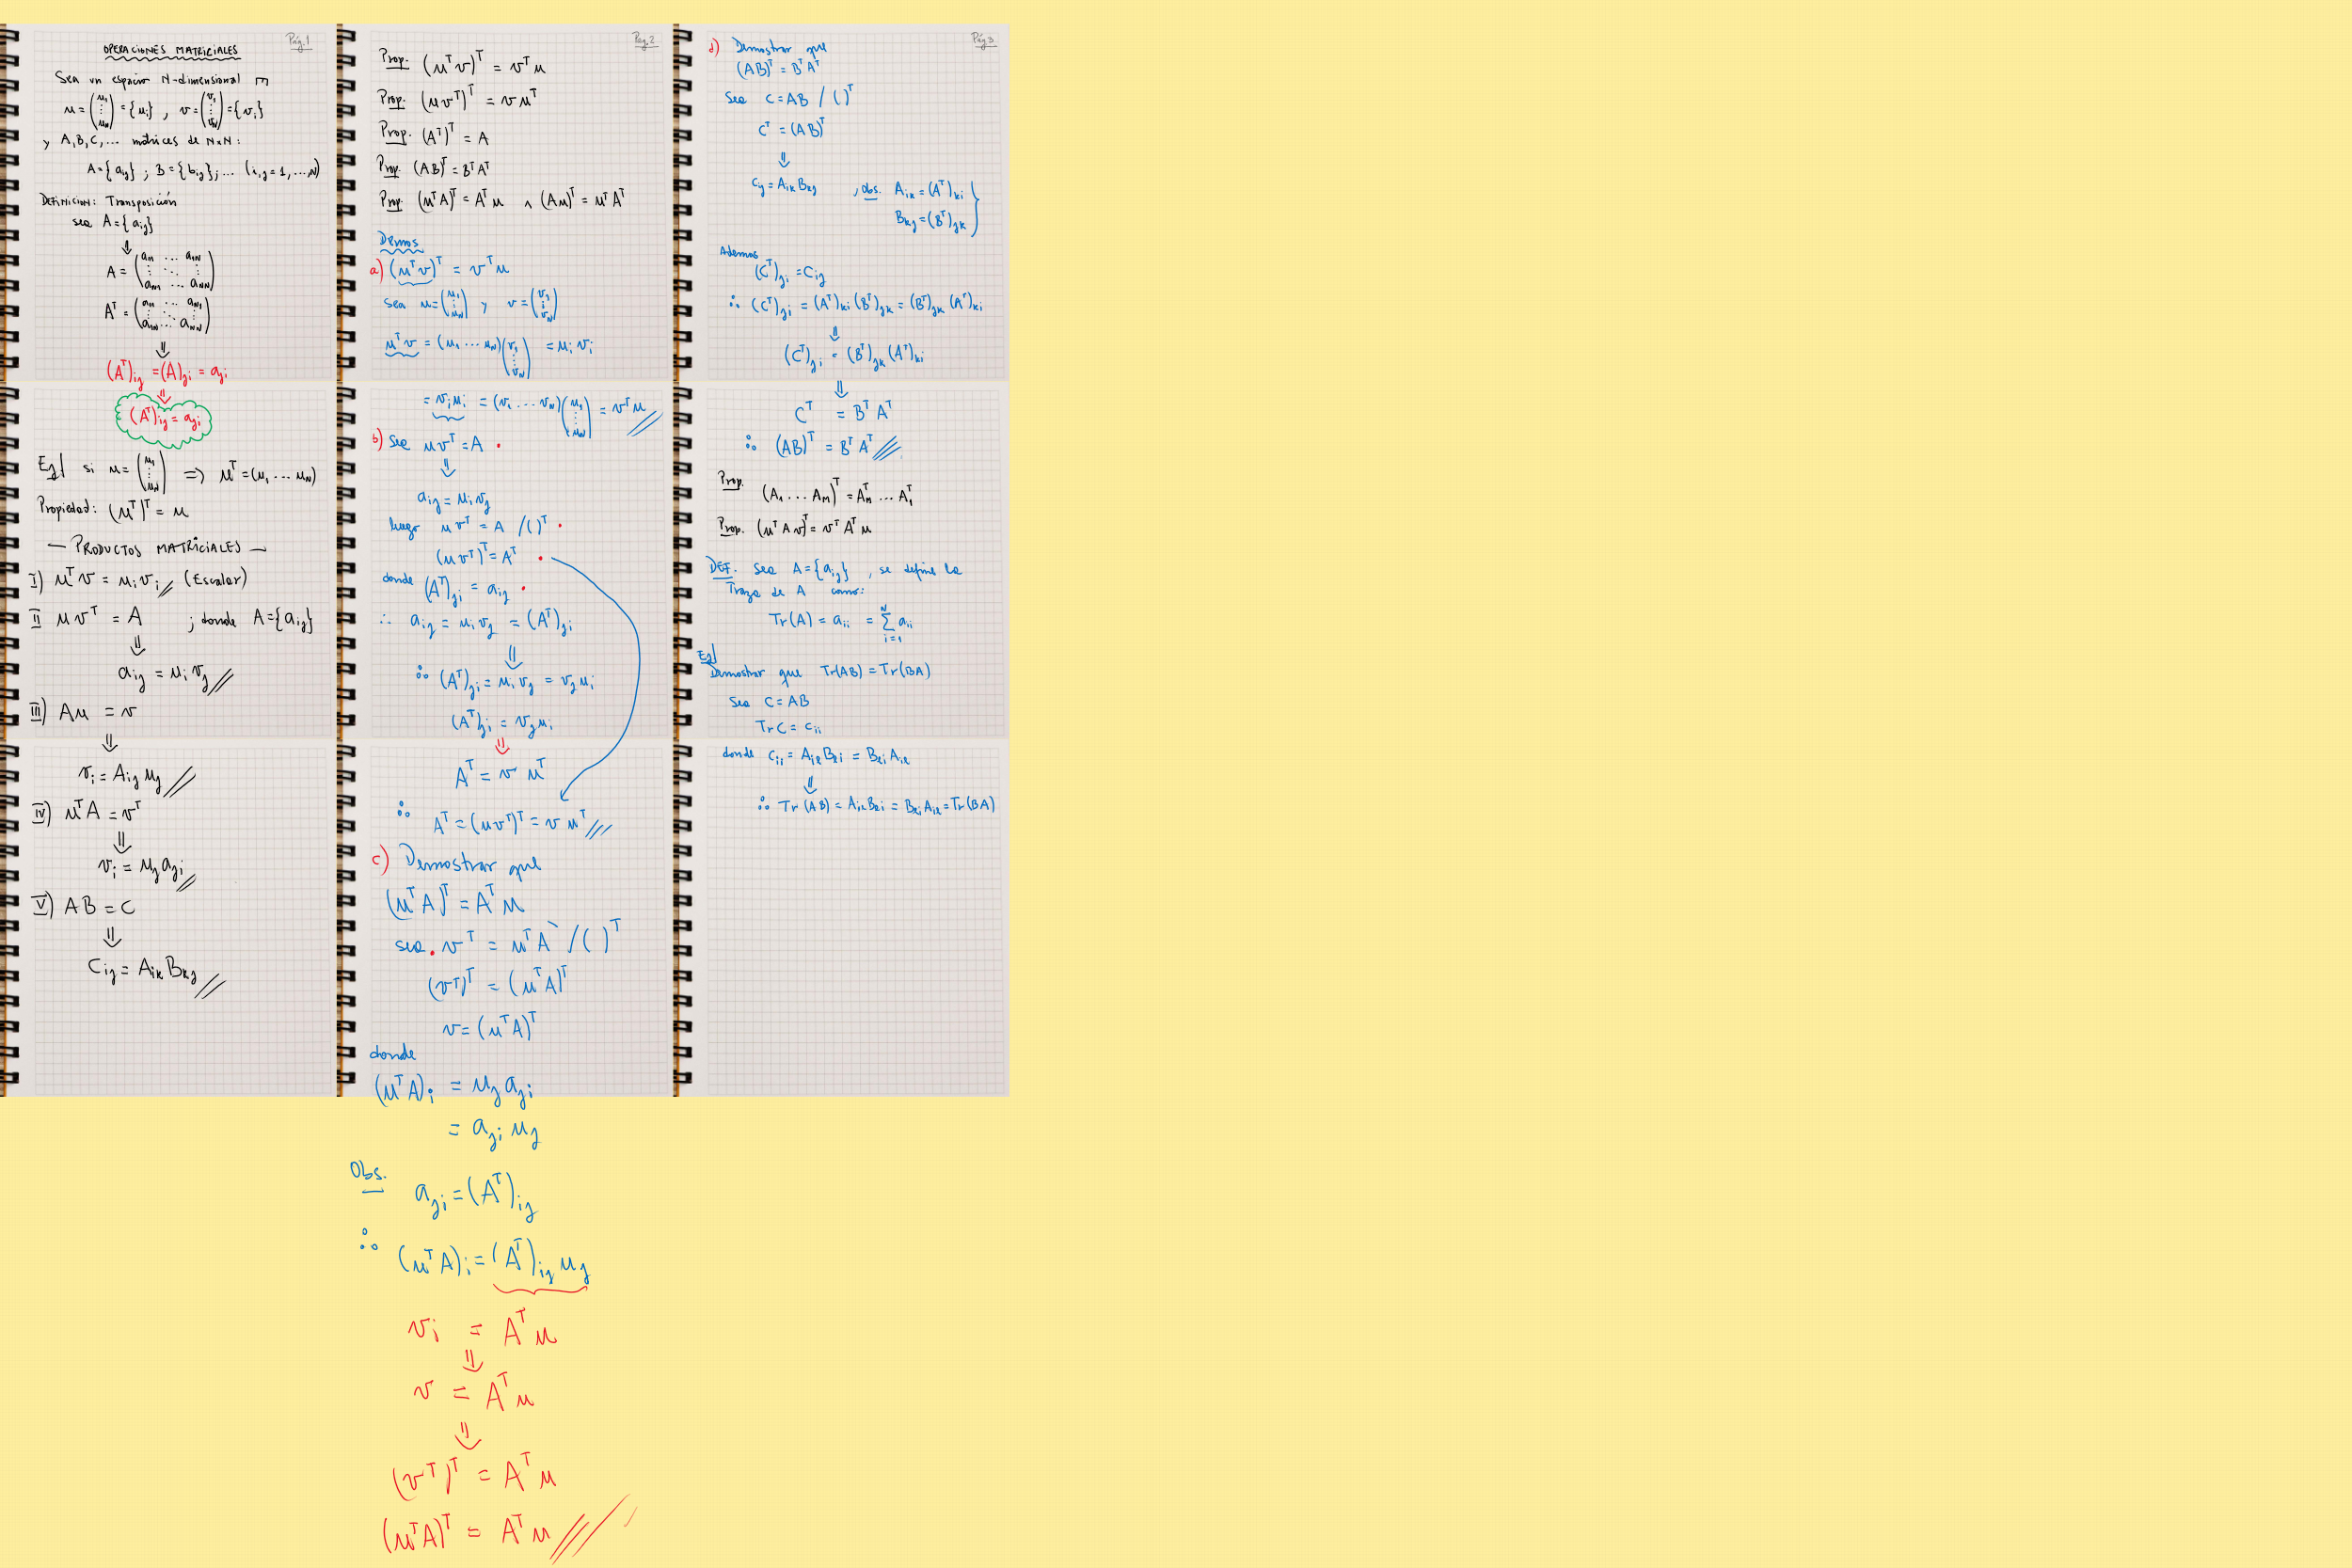 Pág.1
OPERACIONES MATRICIALES
Sea un espacio N-dimensional E
u = (u₁ ⋮ u_N) = {u_i} , v = (v₁ ⋮ v_N) = {v_i}
y A,B,C,... matrices de N×N:
A={a_ij} ; B={b_ij};... (i,j=1,...,N)
DEFINICION: Transposición
sea A={a_ij}
⇓
A = (a₁₁ ... a₁N ⋮ ⋱ ⋮ a_N1 ... a_NN)
Aᵀ = (a₁₁ ... a_N1 ⋮ ⋱ ⋮ a₁N ... a_NN)
⇓
(Aᵀ)_ij = (A)_ji = a_ji
⇓
(Aᵀ)_ij = a_ji
Ej| si u = (u₁ ⋮ u_N) ⇒ uᵀ = (u₁ ... u_N)
Propiedad: (uᵀ)ᵀ = u
— PRODUCTOS MATRICIALES —
I) uᵀv = u_i v_i // (Escalar)
II u vᵀ = A ; donde A={a_ij}
⇓
a_ij = u_i v_j //
III) Au = v
⇓
v_i = A_ij u_j //
IV) uᵀA = vᵀ
⇓
v_i = u_j a_ji //
V) AB = C
⇓
C_ij = A_ik B_kj //
Pag.2
Prop. (uᵀv)ᵀ = vᵀu
Prop. (uvᵀ)ᵀ = vuᵀ
Prop. (Aᵀ)ᵀ = A
Prop. (AB)ᵀ = BᵀAᵀ
Prop. (uᵀA)ᵀ = Aᵀu ∧ (Au)ᵀ = uᵀAᵀ
Demos
a) (uᵀv)ᵀ = vᵀu
sea u = (u₁ ⋮ u_N) y v = (v₁ ⋮ v_N)
uᵀv = (u₁ ... u_N)(v₁ ⋮ v_N) = u_i v_i
= v_i u_i = (v₁ ... v_N)(u₁ ⋮ u_N) = vᵀu //
b) Sea uvᵀ = A
⇓
a_ij = u_i v_j
luego u vᵀ = A /( )ᵀ
(uvᵀ)ᵀ = Aᵀ
donde (Aᵀ)_ji = a_ij
∴ a_ij = u_i v_j = (Aᵀ)_ji
⇓
∴ (Aᵀ)_ji = u_i v_j = v_j u_i
(Aᵀ)_ji = v_j u_i
⇓
Aᵀ = v uᵀ
∴ Aᵀ = (uvᵀ)ᵀ = v uᵀ ///
c) Demostrar que
(uᵀA)ᵀ = Aᵀu
sea vᵀ = uᵀA /( )ᵀ
(vᵀ)ᵀ = (uᵀA)ᵀ
v = (uᵀA)ᵀ
donde
(uᵀA)_i = u_j a_ji
= a_ji u_j
Obs. a_ji = (Aᵀ)_ij
∴ (uᵀA)_i = (Aᵀ)_ij u_j
v_i = Aᵀu
⇓
v = Aᵀu
⇓
(vᵀ)ᵀ = Aᵀu
(uᵀA)ᵀ = Aᵀu ///
Pág 3
d) Demostrar que
(AB)ᵀ = BᵀAᵀ
Sea C = AB /( )ᵀ
Cᵀ = (AB)ᵀ
⇓
C_ij = A_ik B_kj , obs. A_ik = (Aᵀ)_ki
B_kj = (Bᵀ)_jk }
Ademas
(Cᵀ)_ji = C_ij
∴ (Cᵀ)_ji = (Aᵀ)_ki (Bᵀ)_jk = (Bᵀ)_jk (Aᵀ)_ki
⇓
(Cᵀ)_ji = (Bᵀ)_jk (Aᵀ)_ki
⇓
Cᵀ = BᵀAᵀ
∴ (AB)ᵀ = BᵀAᵀ ///
Prop. (A₁ ... A_m)ᵀ = A_mᵀ ... A₁ᵀ
Prop. (uᵀAv)ᵀ = vᵀAᵀu
DEF. Sea A={a_ij} , se define la
Traza de A como:
Tr(A) = a_ii = ∑_{i=1}^{N} a_ii
Ej|
Demostrar que Tr(AB) = Tr(BA)
Sea C = AB
Tr C = c_ii
donde C_ii = A_il B_li = B_li A_il
⇓
∴ Tr(AB) = A_il B_li = B_li A_il = Tr(BA)